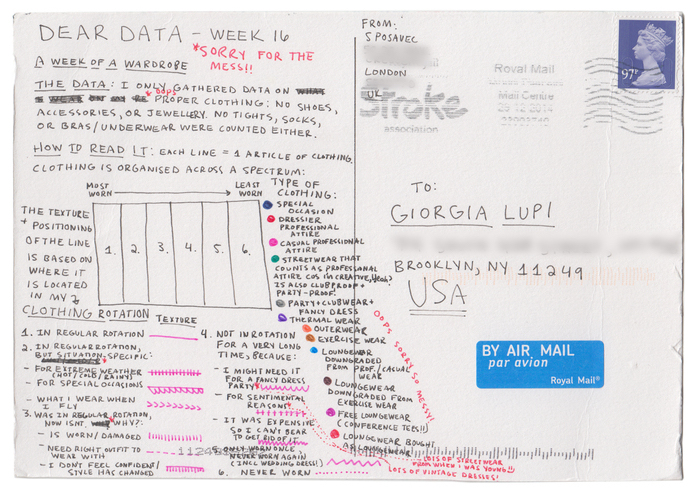 DEAR DATA - WEEK 16
*SORRY FOR THE
MESS!!
A WEEK OF A WARDROBE
THE DATA: I ONLY GATHERED DATA ON
*OOPS
PROPER CLOTHING: NO SHOES,
ACCESSORIES, OR JEWELLERY. NO TIGHTS, SOCKS,
OR BRAS/UNDERWEAR WERE COUNTED EITHER.
HOW TO READ IT: EACH LINE = 1 ARTICLE OF CLOTHING.
CLOTHING IS ORGANISED ACROSS A SPECTRUM:
MOST WORN
LEAST WORN
THE TEXTURE
+ POSITIONING
OF THE LINE
IS BASED ON
WHERE IT
IS LOCATED
IN MY
CLOTHING ROTATION
1. 2. 3. 4. 5. 6.
TYPE OF
CLOTHING:
SPECIAL
OCCASION
DRESSIER
PROFESSIONAL
ATTIRE
CASUAL PROFESSIONAL
ATTIRE
STREETWEAR THAT
COUNTS AS PROFESSIONAL
ATTIRE CUS IM CREATIVE,
IS ALSO CLUBPROOF +
PARTY-PROOF.
PARTY+CLUBWEAR+
FANCY DRESS
THERMAL WEAR
OUTERWEAR
EXERCISE WEAR
LOUNGEWEAR
DOWNGRADED
FROM PROF./CASUAL
WEAR
LOUNGEWEAR
DOWNGRADED FROM
EXERCISE WEAR
FREE LOUNGEWEAR
(CONFERENCE TEES!!)
LOUNGEWEAR BOUGHT
AS LOUNGEWEAR
TEXTURE
1. IN REGULAR ROTATION
2. IN REGULAR ROTATION,
BUT SITUATION-SPECIFIC:
- FOR EXTREME WEATHER
(HOT/COLD/RAINY)
- FOR SPECIAL OCCASIONS
- WHAT I WEAR WHEN
I FLY
3. WAS IN REGULAR ROTATION,
NOW ISNT. WHY?:
- IS WORN/DAMAGED
- NEED RIGHT OUTFIT TO
WEAR WITH
- I DON'T FEEL CONFIDENT/
STYLE HAS CHANGED
4. NOT IN ROTATION
FOR A VERY LONG
TIME, BECAUSE:
- I MIGHT NEED IT
FOR A FANCY DRESS
PARTY*
- FOR SENTIMENTAL
REASONS*
- IT WAS EXPENSIVE
SO I CAN'T BEAR
TO GET RID OF IT
5. ONLY WORN ONCE,
NEVER WORN AGAIN
(INCL WEDDING DRESS!)
6. NEVER WORN
OOPS SORRY SO MESSY!
LOTS OF STREETWEAR
FROM WHEN I WAS YOUNG!!
LOTS OF VINTAGE DRESSES!
FROM:
S POSAVEC
LONDON
UK
Stroke
association
Royal Mail
Mail Centre
97P
TO:
GIORGIA LUPI
BROOKLYN, NY 11249
USA
BY AIR MAIL
par avion
Royal Mail®